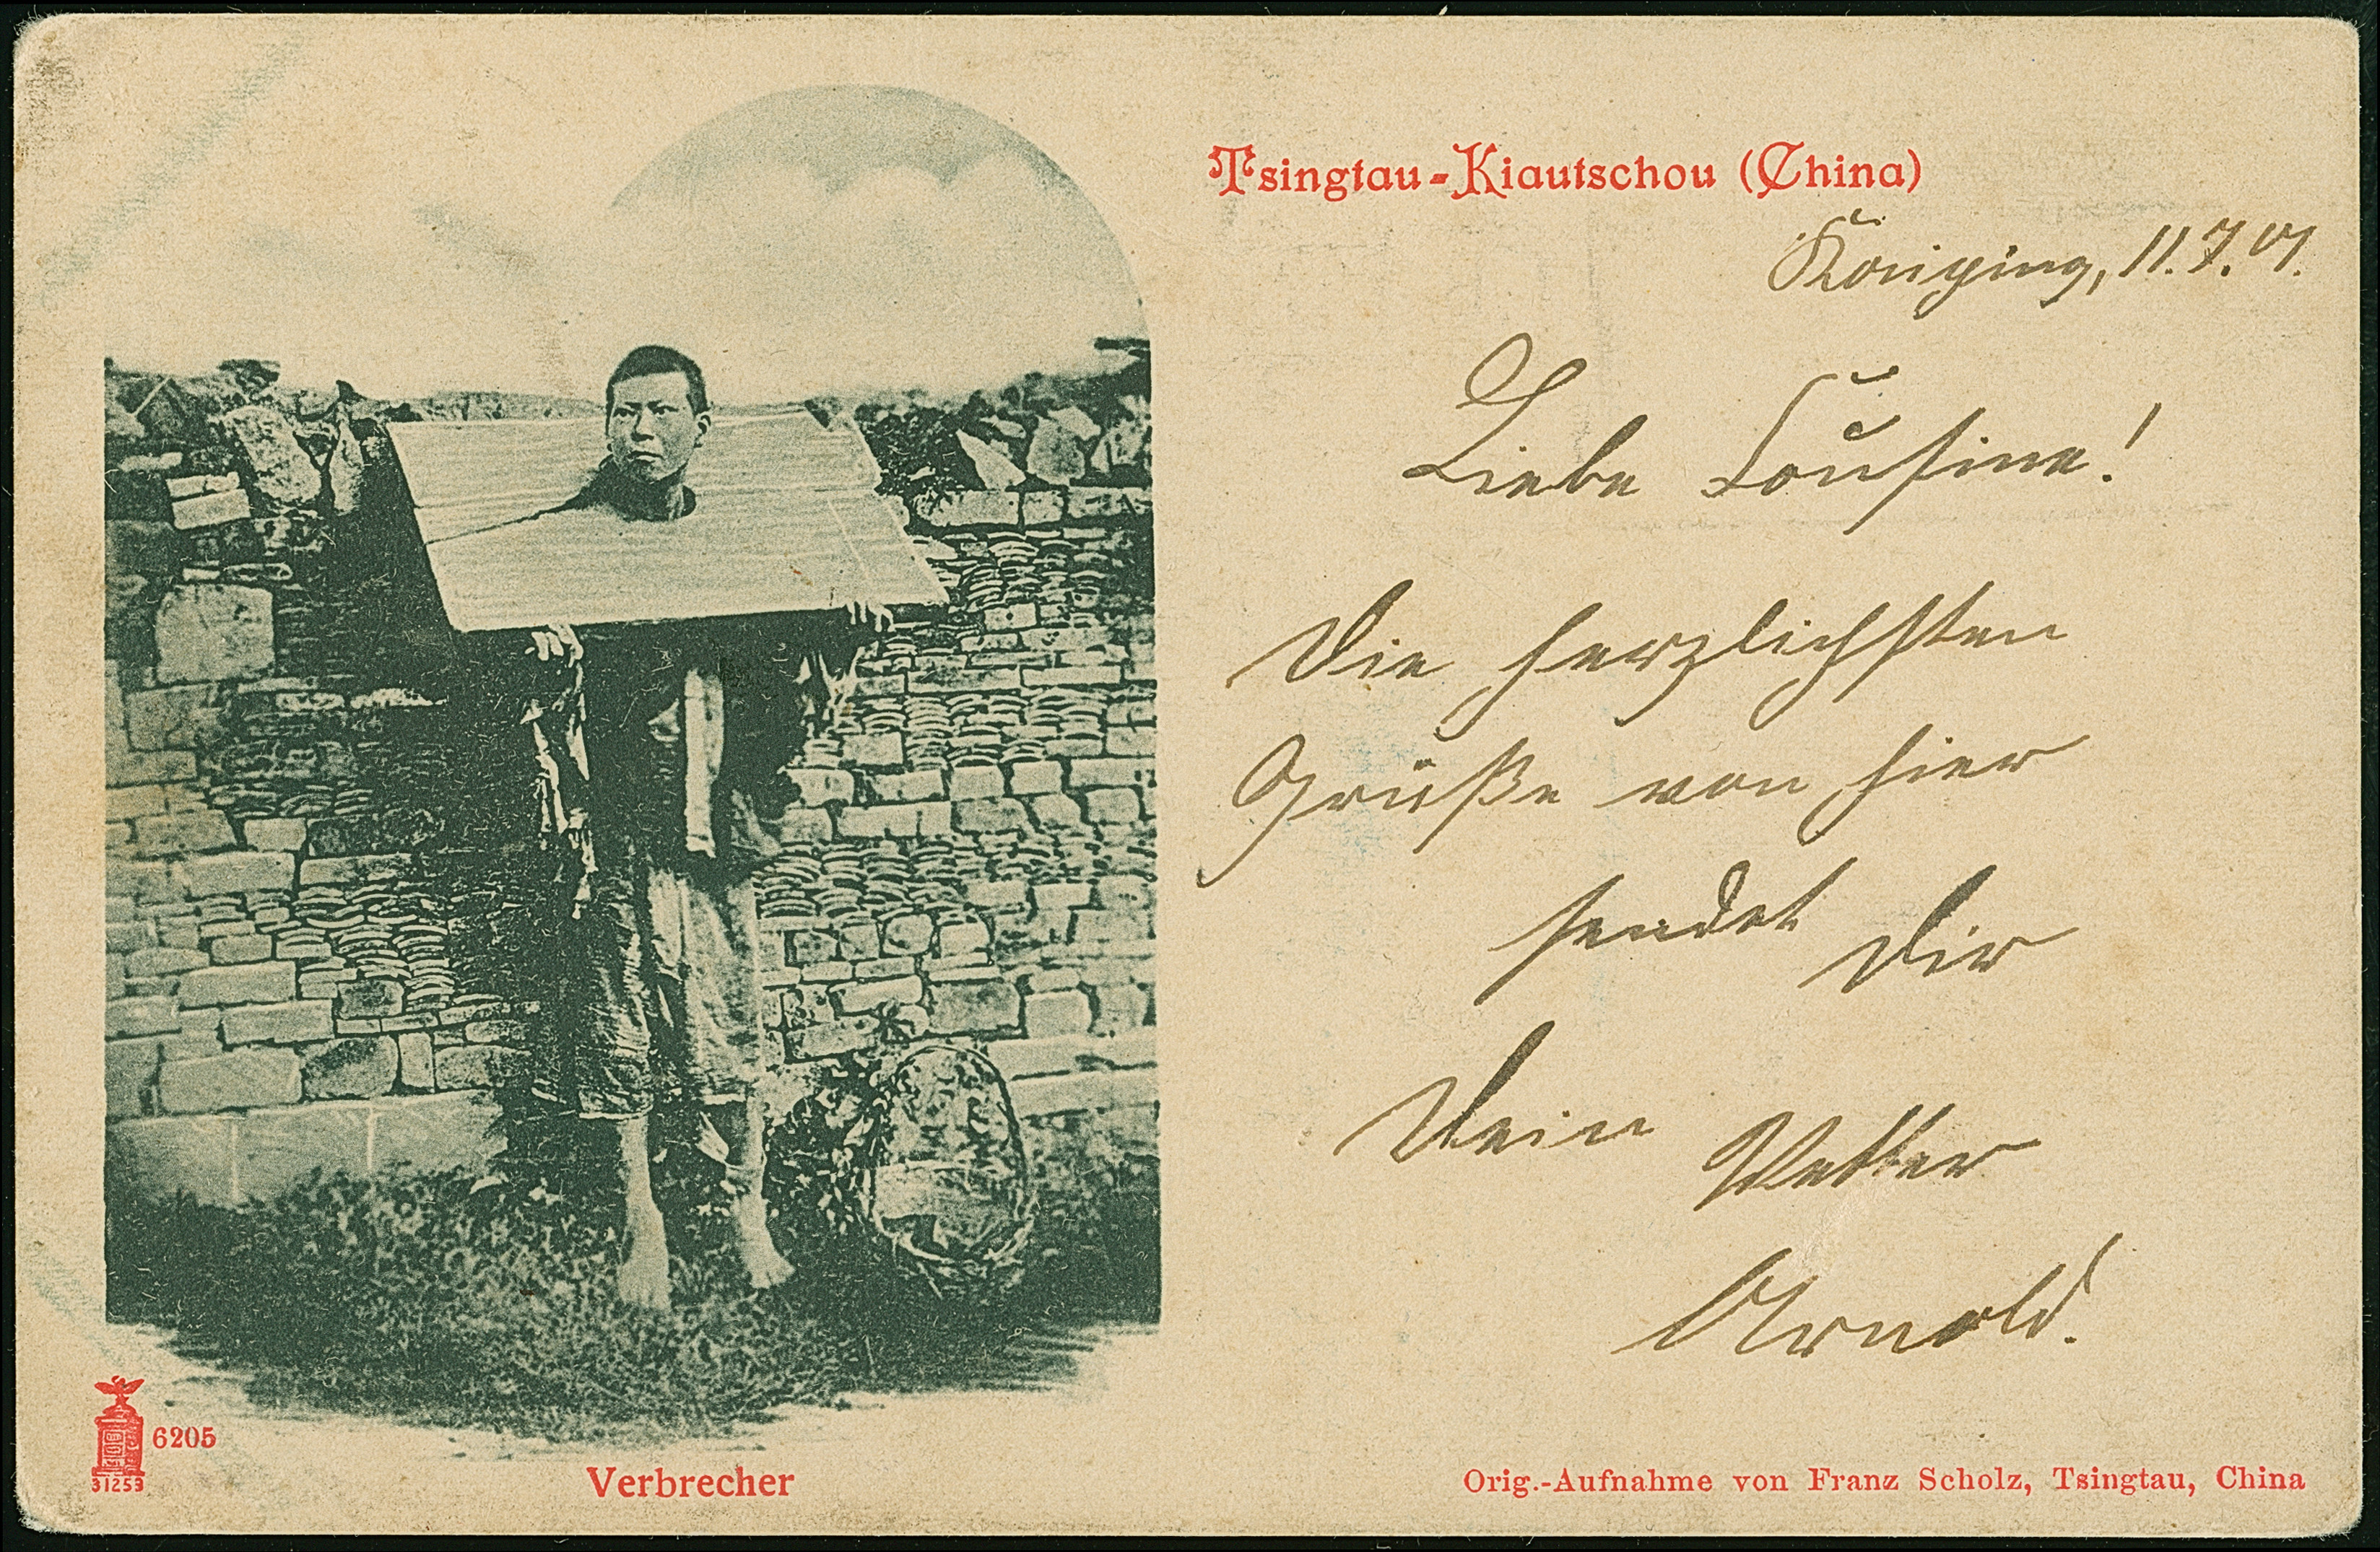 Tsingtau-Kiautschou (China)
11.7.01.
Liebe Cousine!
Die herzlichsten
Grüße von hier
sendet Dir
Dein Vetter
Arnold.
6205
31253
Verbrecher
Orig.-Aufnahme von Franz Scholz, Tsingtau, China